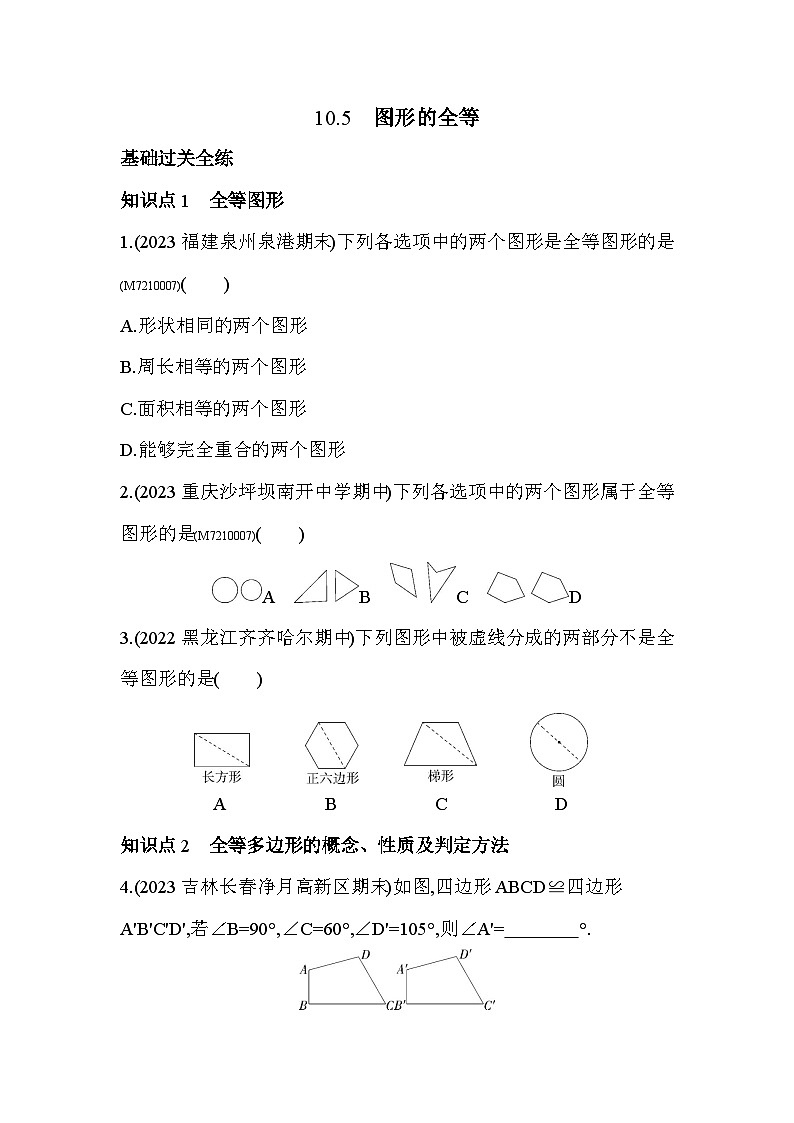 10.5 图形的全等
基础过关全练
知识点1 全等图形
1.(2023福建泉州泉港期末)下列各选项中的两个图形是全等图形的是
(M7210007)(  )
A.形状相同的两个图形
B.周长相等的两个图形
C.面积相等的两个图形
D.能够完全重合的两个图形
2.(2023重庆沙坪坝南开中学期中)下列各选项中的两个图形属于全等
图形的是(M7210007)(  )
A B C D
3.(2022黑龙江齐齐哈尔期中)下列图形中被虚线分成的两部分不是全
等图形的是(  )
长方形 正六边形 梯形 圆
A B C D
知识点2 全等多边形的概念、性质及判定方法
4.(2023吉林长春净月高新区期末)如图,四边形ABCD≌四边形
A'B'C'D',若∠B=90°,∠C=60°,∠D'=105°,则∠A'=________°.
D D'
A A'
B C B' C'